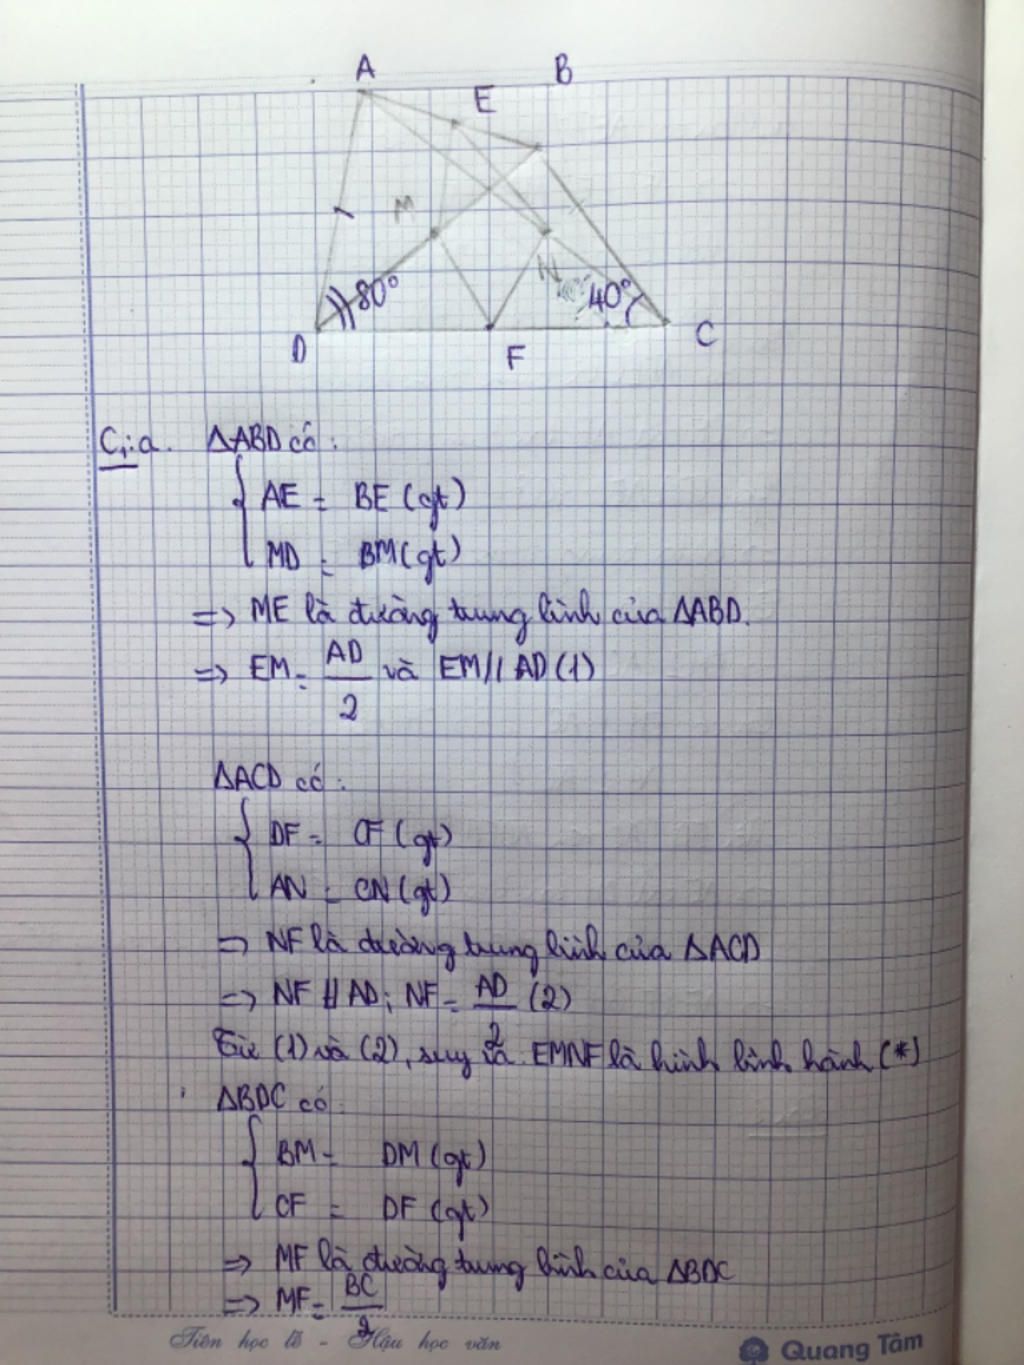 A
E
B
M
N
80°
40°
D
F
C
C₁: a. ΔABD có:
AE = BE (gt)
MD = BM (gt)
=> ME là đường trung bình của ΔABD.
=> EM = AD/2 và EM // AD (1)
ΔACD có:
DF = CF (gt)
AN = CN (gt)
=> NF là đường trung bình của ΔACD
=> NF // AD; NF = AD/2 (2)
Từ (1) và (2), suy ra EMNF là hình bình hành (*)
ΔBDC có
BM = DM (gt)
CF = DF (gt)
=> MF là đường trung bình của ΔBDC
=> MF = BC/2
Tiên học lễ - Hậu học văn
Quang Tâm